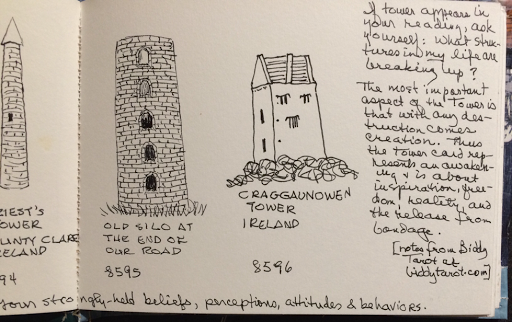 If tower appears in
your reading, ask
yourself: What struc-
tures in my life are
breaking up?
The most important
aspect of the Tower is
that with any des-
truction comes
creation. Thus
the Tower card rep-
resents an awaken-
ing & is about
inspiration, free-
dom, reality, and
the release from
bondage.
[notes from Biddy
Tarot at
biddytarot.com]
IEST'S
OWER
UNTY CLARE
ELAND
94
OLD SILO AT
THE END OF
OUR ROAD
8595
CRAGGAUNOWEN
TOWER
IRELAND
8596
your strongly-held beliefs, perceptions, attitudes & behaviors.